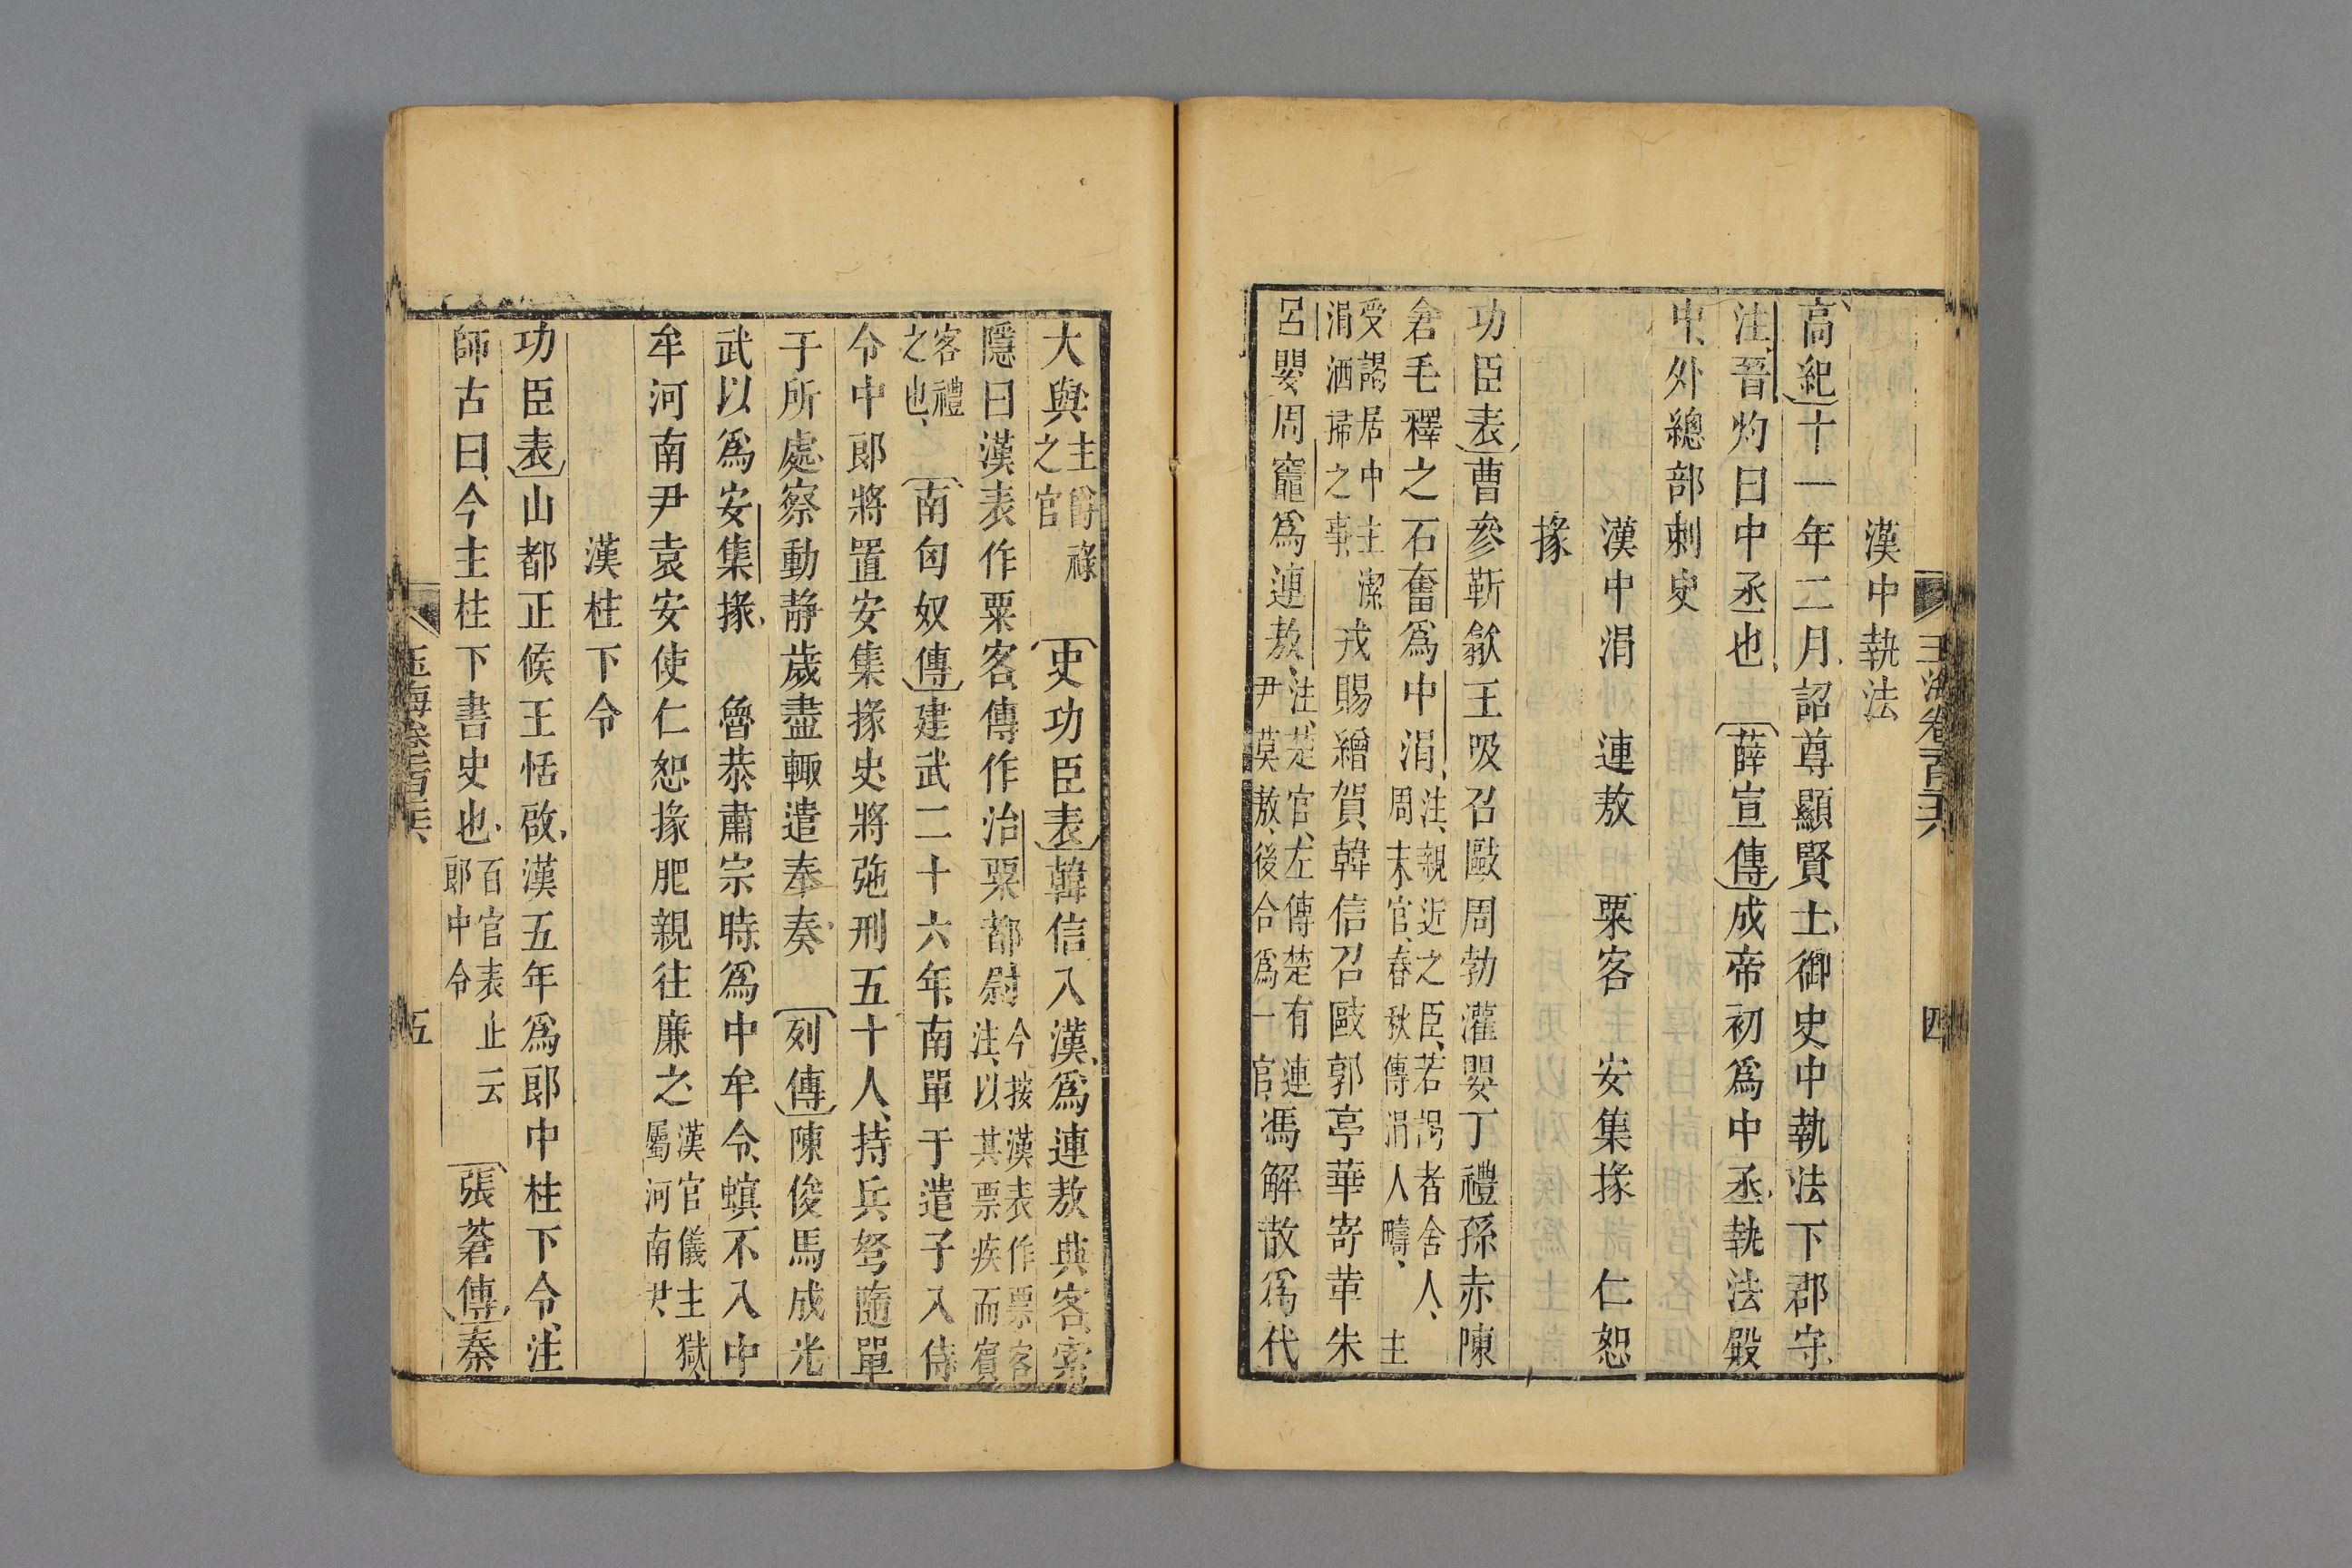 漢中執法
高紀十一年二月詔尊顯賢士御史中執法下郡守
注晉灼曰中丞也 薛宣傳成帝初爲中丞執法殿
中外總部刺史
漢中涓 連敖 粟客 安集掾 仁恕
掾
功臣表曹參靳歙王吸召歐周勃灌嬰丁禮孫赤陳
倉毛釋之石奮爲中涓注親近之臣若謁者舍人主
周末官春秋傳涓人疇
受謁居中主潔
涓洒掃之事戎賜繒賀韓信召歐郭亭華寄革朱
呂嬰周竈爲連敖注楚官左傳楚有連
尹莫敖後合爲一官馮解散爲代
玉海卷百二六 四
大與主爵祿
之官 史功臣表韓信入漢爲連敖典客索
隱曰漢表作粟客傳作治粟都尉今按漢表作票客
注以其票疾而賓
客禮
之也 南匈奴傳建武二十六年南單于遣子入侍
令中郎將置安集掾史將弛刑五十人持兵弩隨單
于所處察動靜歲盡輒遣奉奏 列傳陳俊馬成光
武以爲安集掾 魯恭肅宗時爲中牟令螟不入中
牟河南尹袁安使仁恕掾肥親往廉之漢官儀主獄
屬河南尹
漢柱下令
功臣表山都正侯王恬啟漢五年爲郎中柱下令注
師古曰今主柱下書史也百官表止云
郎中令 張蒼傳秦
玉海卷百二六 五